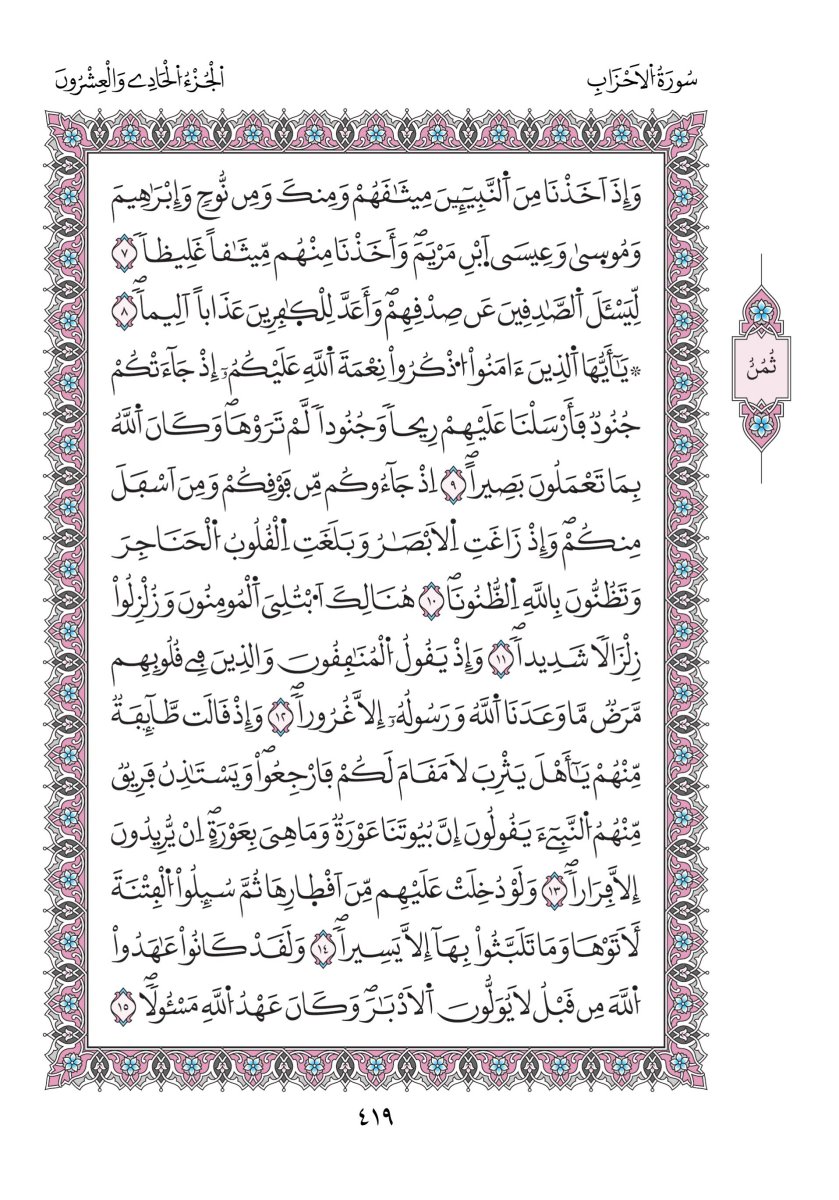 سُورَةُ اُ۬لَاحْزَابِ
اَ۬لْجُزْءُ اُ۬لْحَادِے وَالْعِشْرُونَ
وَإِذَ اَخَذْنَا مِنَ اَ۬لنَّبِيٓـِٕۧنَ مِيثَٰقَهُمْ وَمِنكَ وَمِن نُّوحٖ وَإِبْرَٰهِيمَ
وَمُوس۪يٰ وَعِيسَى اَ۪بْنِ مَرْيَمَۖ وَأَخَذْنَا مِنْهُم مِّيثَٰقاً غَلِيظاٗ ٧
لِّيَسْـَٔلَ اَ۬لصَّٰدِقِينَ عَن صِدْقِهِمْۖ وَأَعَدَّ لِلْكٰ۪فِرِينَ عَذَاباً اَلِيماٗۖ ٨
۞يَٰٓأَيُّهَا اَ۬لذِينَ ءَامَنُواْ اُ۟ذْكُرُواْ نِعْمَةَ اَ۬للَّهِ عَلَيْكُمُۥٓ إِذْ جَآءَتْكُمْ
جُنُودٞ فَأَرْسَلْنَا عَلَيْهِمْ رِيحاٗ وَجُنُوداٗ لَّمْ تَرَوْهَاۖ وَكَانَ اَ۬للَّهُ
بِمَا تَعْمَلُونَ بَصِيراًۖ ٩ اِذْ جَآءُوكُم مِّن فَوْقِكُمْ وَمِنَ اَسْفَلَ
مِنكُمْۖ وَإِذْ زَاغَتِ اِ۬لَابْصَٰرُ وَبَلَغَتِ اِ۬لْقُلُوبُ اُ۬لْحَنَاجِرَ
وَتَظُنُّونَ بِاللَّهِ اِ۬لظُّنُونَاۖ ١٠ هُنَالِكَ اَ۟بْتُلِيَ اَ۬لْمُومِنُونَ وَزُلْزِلُواْ
زِلْزَالاٗ شَدِيداٗۖ ١١ وَإِذْ يَقُولُ اُ۬لْمُنَٰفِقُونَ وَالذِينَ فِے قُلُوبِهِم
مَّرَضٞ مَّا وَعَدَنَا اَ۬للَّهُ وَرَسُولُهُۥٓ إِلَّا غُرُوراٗۖ ١٢ وَإِذْ قَالَت طَّآئِفَةٞ
مِّنْهُمْ يَٰٓأَهْلَ يَثْرِبَ لَا مَقَامَ لَكُمْ فَارْجِعُواْۖ وَيَسْتَٰذِنُ فَرِيقٞ
مِّنْهُمُ اُ۬لنَّبِيٓءَ يَقُولُونَ إِنَّ بُيُوتَنَا عَوْرَةٞ وَمَا هِيَ بِعَوْرَةٍۖ اِنْ يُّرِيدُونَ
إِلَّا فِرَاراٗۖ ١٣ وَلَوْ دُخِلَتْ عَلَيْهِم مِّنَ اَقْطٰ۪ارِهَا ثُمَّ سُئِلُواْ اُ۬لْفِتْنَةَ
لَأَتَوْهَا وَمَا تَلَبَّثُواْ بِهَآ إِلَّا يَسِيراٗۖ ١٤ وَلَقَدْ كَانُواْ عَٰهَدُواْ
اُ۬للَّهَ مِن قَبْلُ لَا يُوَلُّونَ اَ۬لَادْبَٰرَۖ وَكَانَ عَهْدُ اُ۬للَّهِ مَسْـُٔولاٗۖ ١٥
ثُمُنُ
٤١٩